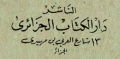 الناشر
دار الكتاب الجزائرى
١٣ شارع العربى بن مهيدى
الجزائر